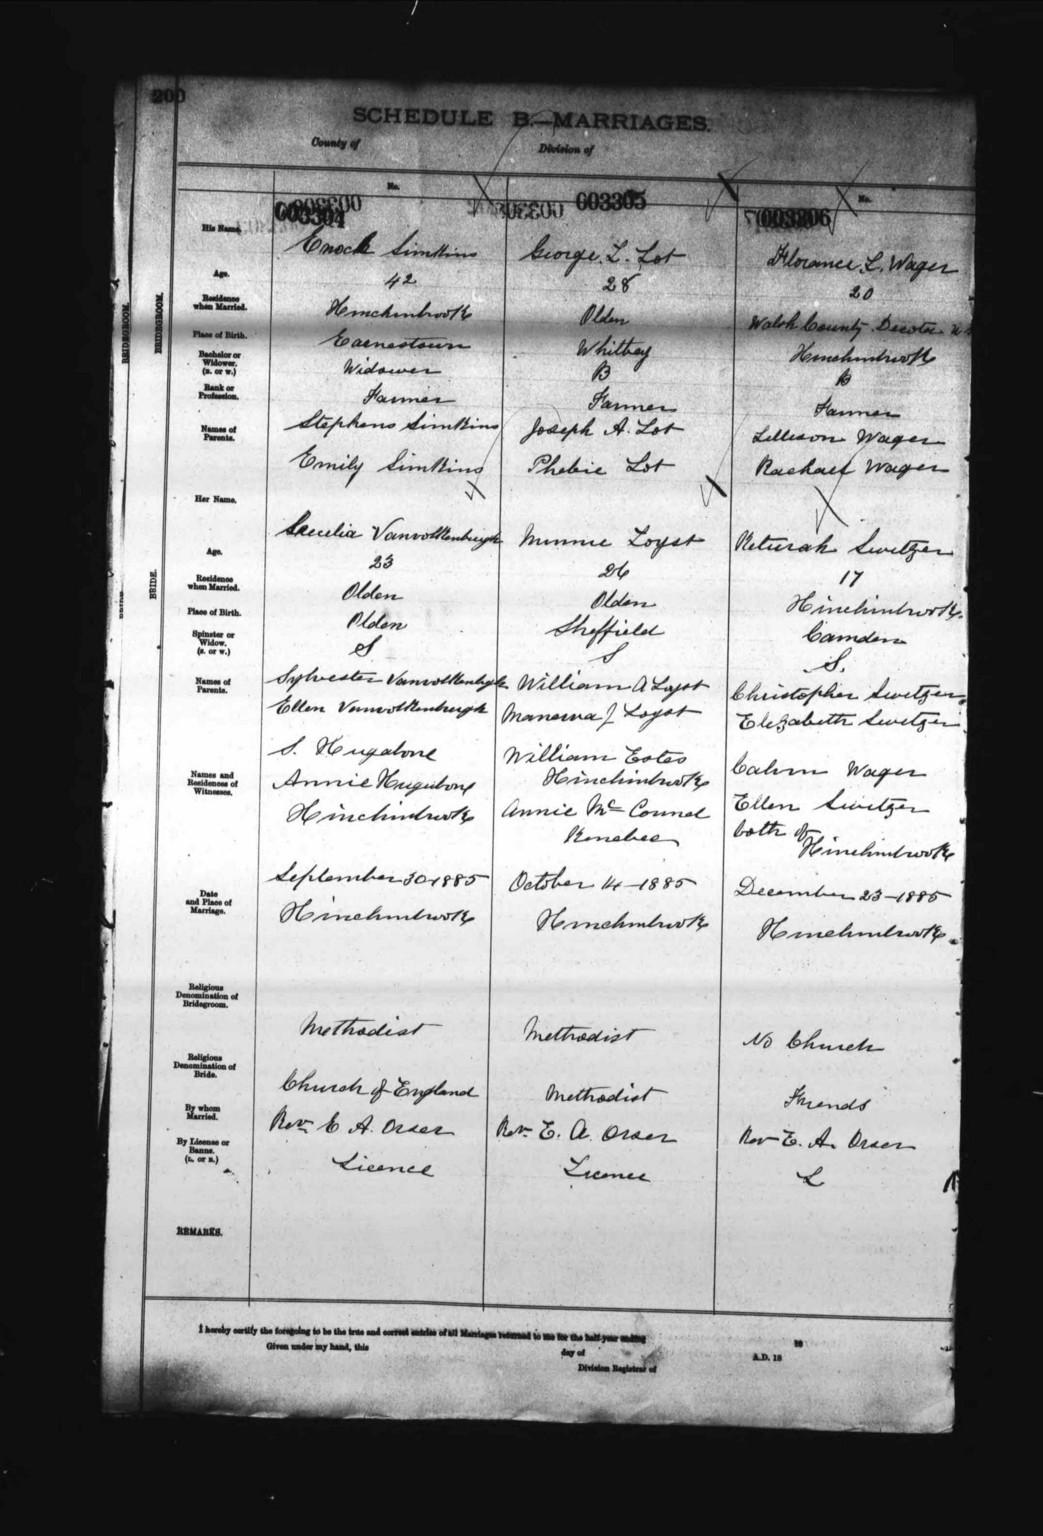 200
SCHEDULE B.—MARRIAGES.
County of
Division of
No.
No.
003304
003305
003306
His Name.
Enoch Simkins
George L. Lot
Florance L. Wager
Age.
42
28
20
Residence when Married.
Hinchinbrooke
Olden
Walsh County Decota
Place of Birth.
Earnestown
Whitbey
Hinchinbrooke
Bachelor or Widower. (B. or W.)
Widower
B
B
Rank or Profession.
Farmer
Farmer
Farmer
Names of Parents.
Stephens Simkins
Joseph A. Lot
Wager
Emily Simkins
Phebie Lot
Rachael Wager
BRIDEGROOM.
BRIDEGROOM.
Her Name.
Vanvolkenburgh
Minnie Loyst
Keturah Switzer
Age.
23
26
17
Residence when Married.
Olden
Olden
Hinchinbrooke.
BRIDE.
Place of Birth.
Olden
Sheffield
Camden
Spinster or Widow. (S. or W.)
S
S
S.
Names of Parents.
Sylvester Vanvolkenburgh
William A Loyst
Christopher Switzer
Ellen Vanvolkenburgh
Manerva J Loyst
Elezabeth Switzer
Names and Residences of Witnesses.
S. Hugabone
William Estes
Calvin Wager
Annie Hugabone
Hinchinbrooke
Ellen Switzer
Hinchinbrooke
Annie McConnel
both of
Kenebec
Hinchinbrooke
Date and Place of Marriage.
September 30-1885
October 14-1885
December 23-1885
Hinchinbrooke
Hinchinbrooke
Hinchinbrooke.
Religious Denomination of Bridegroom.
Methodist
Methodist
No Church
Religious Denomination of Bride.
Church of England
Methodist
Friends
By whom Married.
Rev E A. Orser
Rev E. A. Orser
Rev E. A. Orser
By License or Banns. (L. or B.)
Licence
Licence
L
REMARKS.
I hereby certify the foregoing to be the true and correct entries of all Marriages returned to me for the half-year ending
18
Given under my hand, this
day of
A.D. 18
Division Registrar of